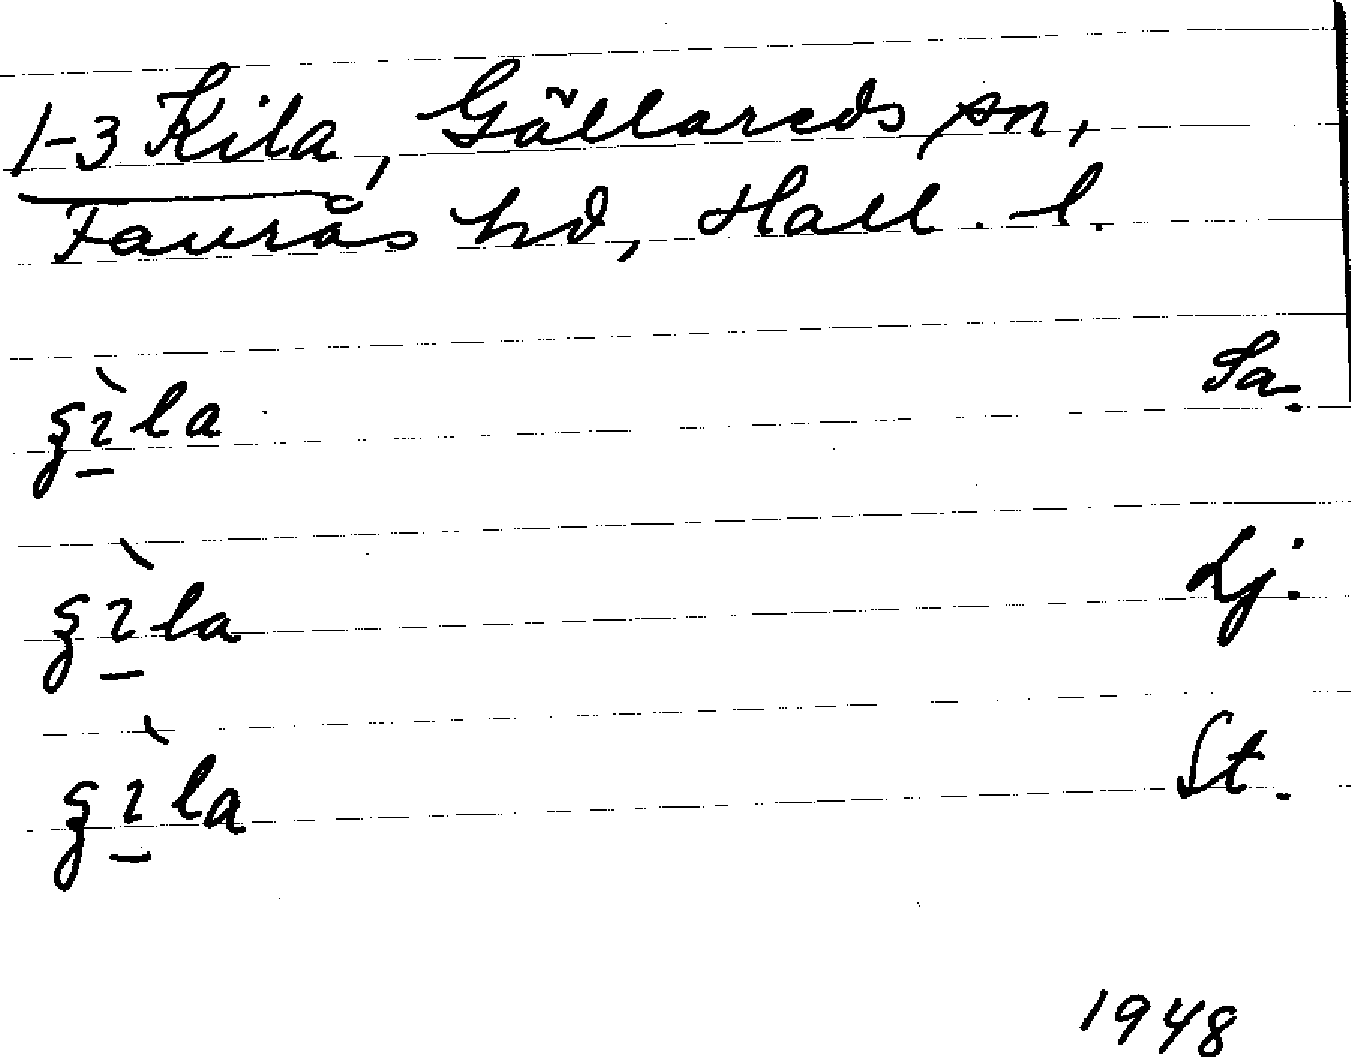 1-3 Kila, Gällareds sn,
Faurås hd, Hall. l.
ɕɪ̱̀la Sa.
ɕɪ̱̀la Lj.
ɕɪ̱̀la St.
1948